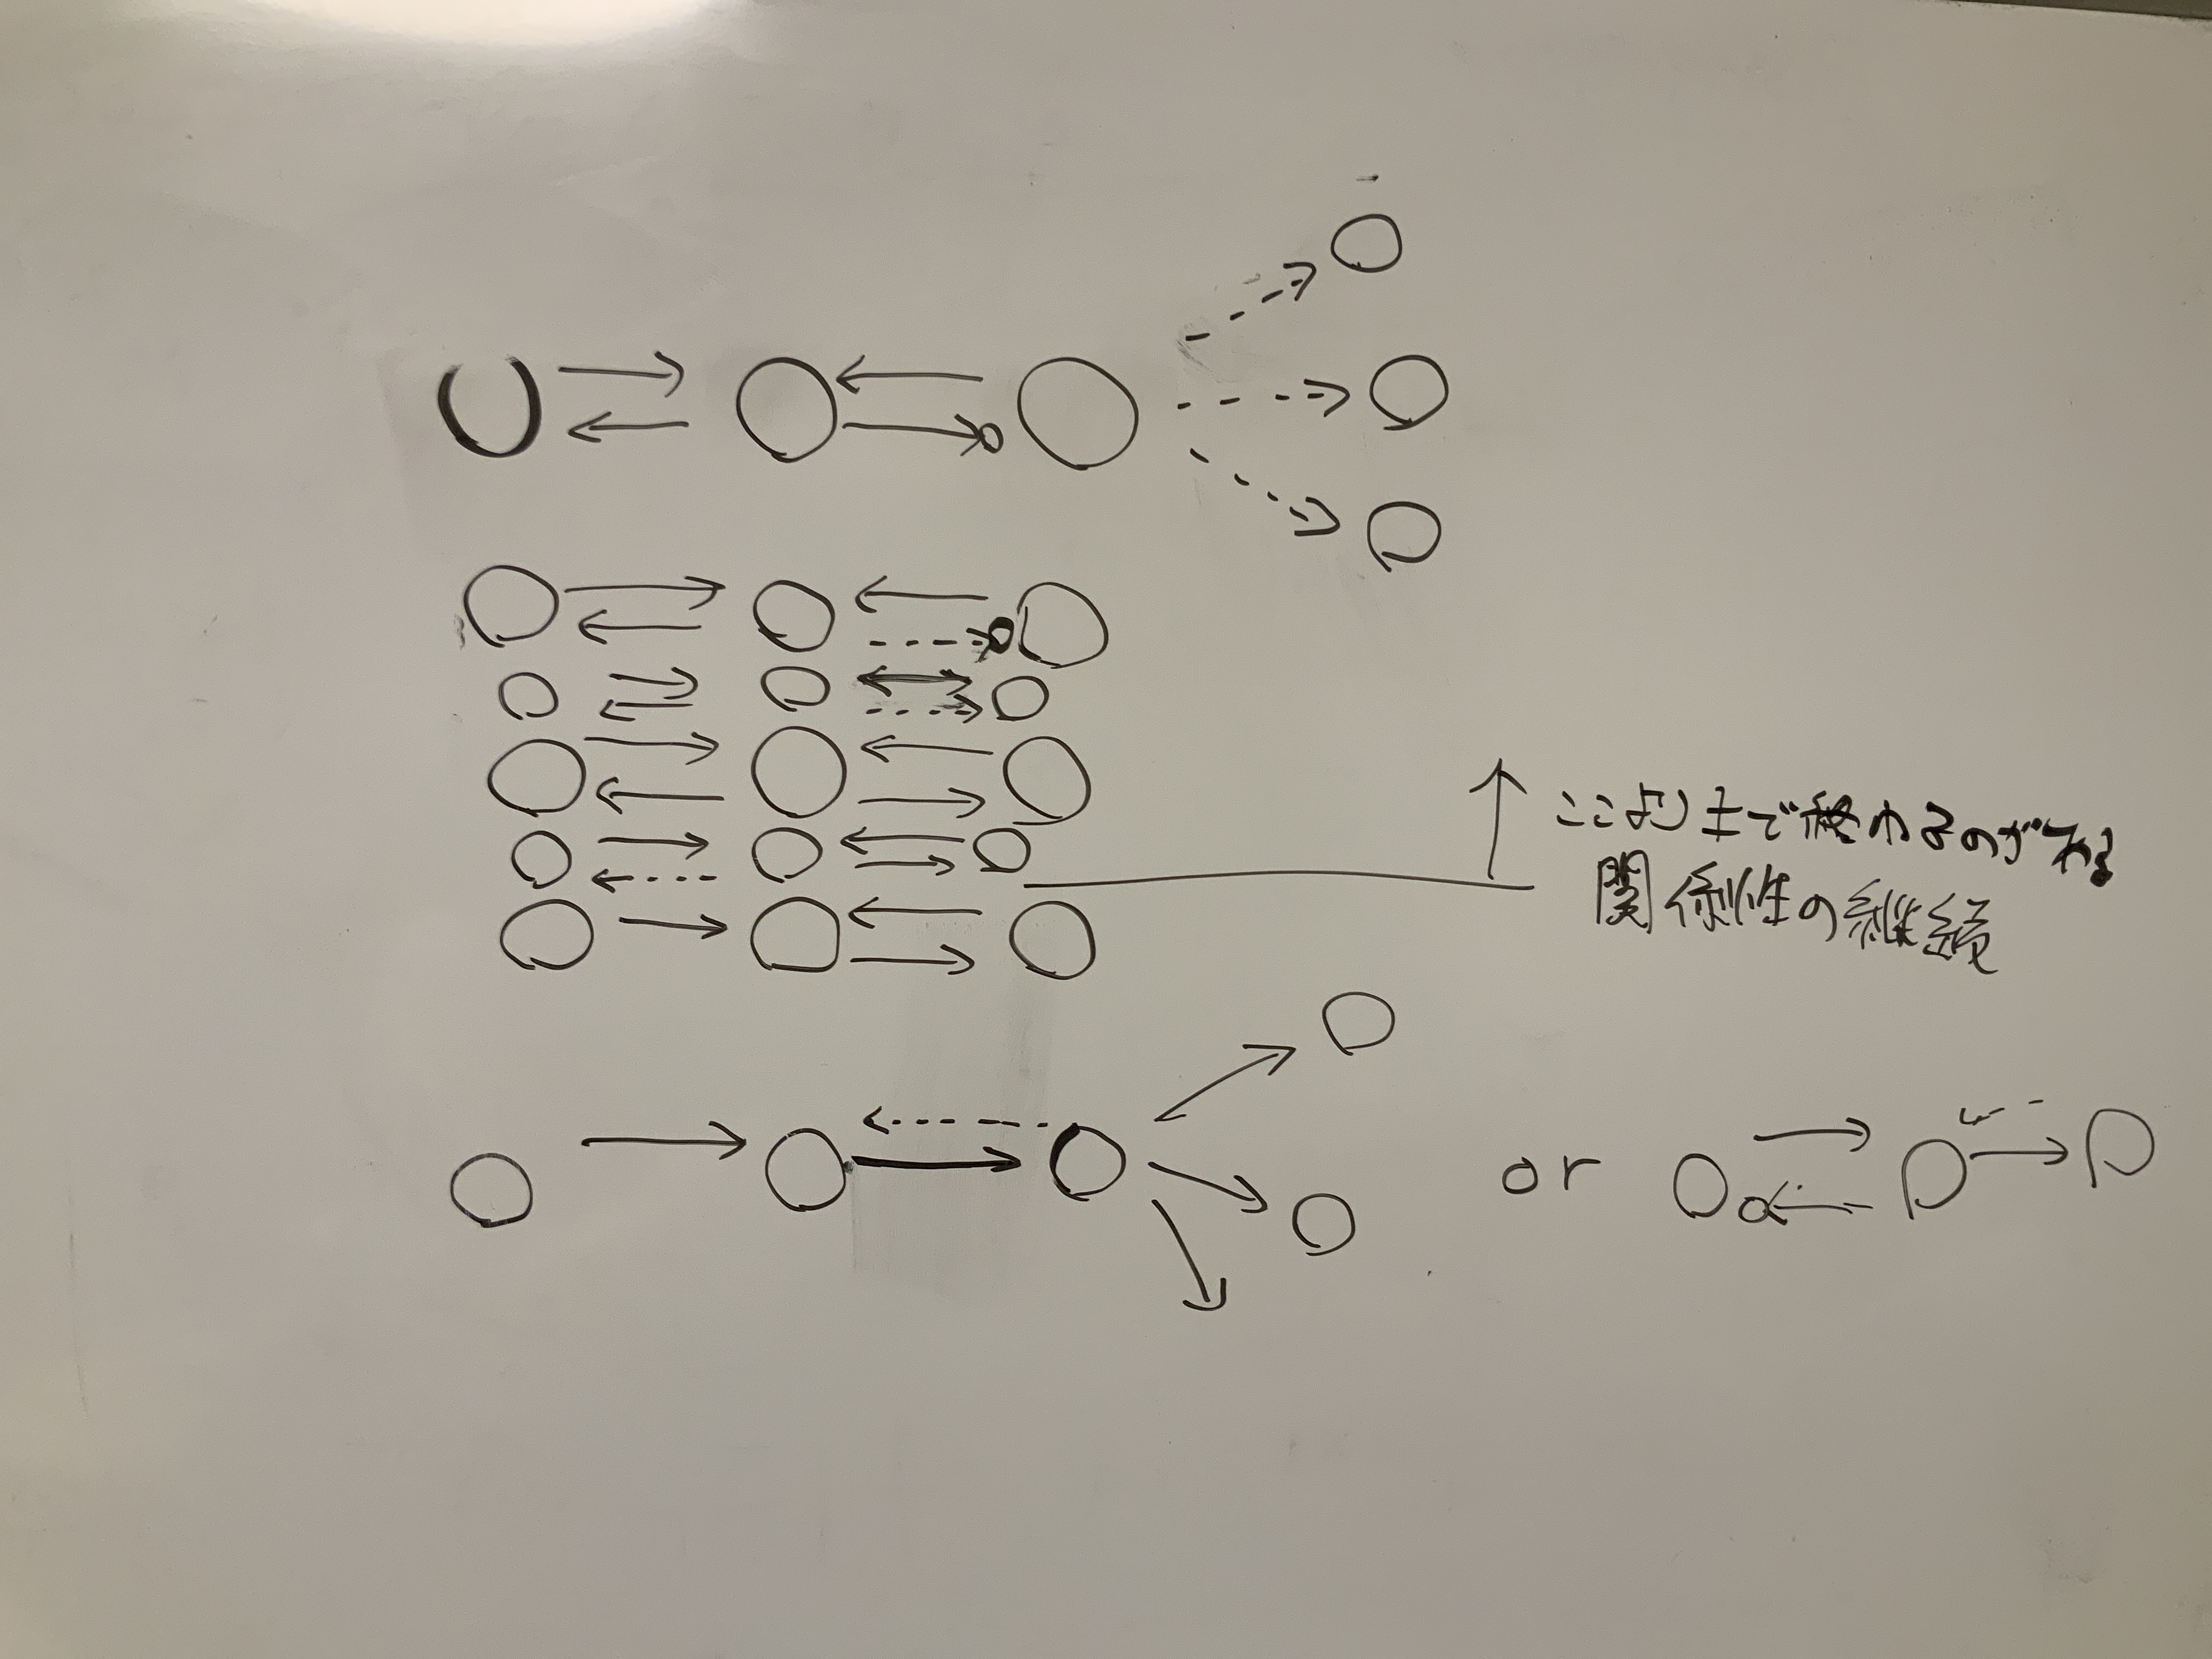 ここより上で終わるのが
関係性の継続
or